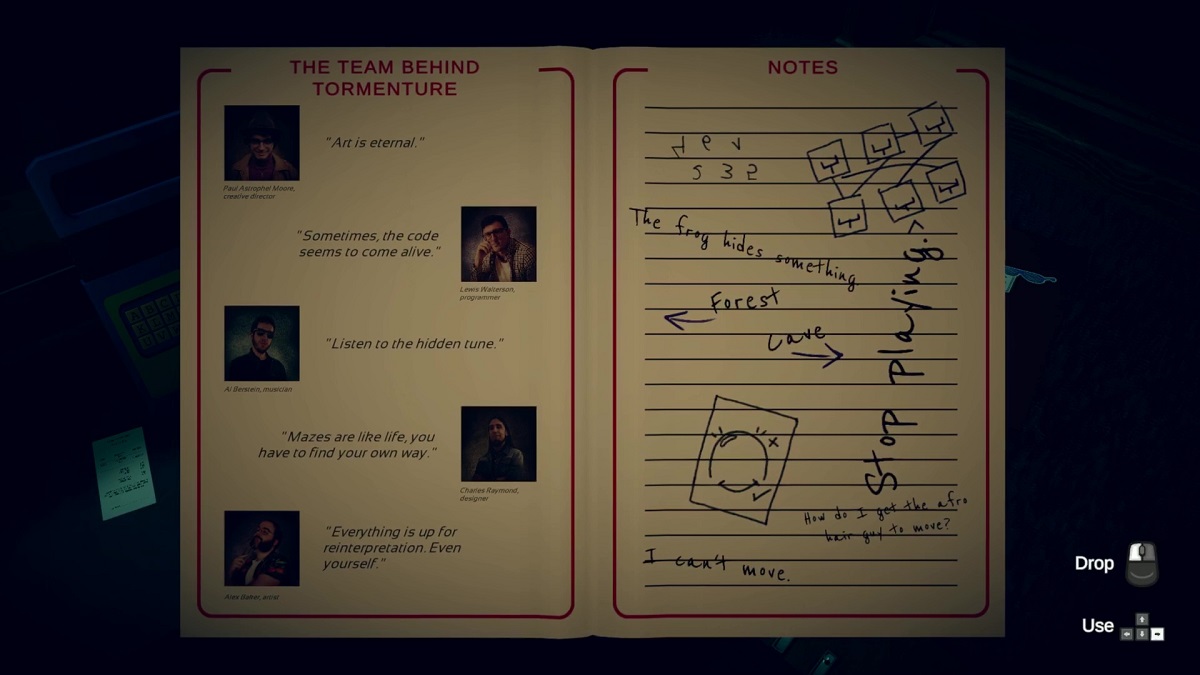 THE TEAM BEHIND
TORMENTURE
"Art is eternal."
Paul Astrophel Moore,
creative director
"Sometimes, the code
seems to come alive."
Lewis Walterson,
programmer
"Listen to the hidden tune."
Al Berstein, musician
"Mazes are like life, you
have to find your own way."
Charles Raymond,
designer
"Everything is up for
reinterpretation. Even
yourself."
Alex Baker, artist
NOTES
The frog hides something
Forest
Cave
Stop Playing.
How do I get the afro
hair guy to move?
I can't move.
Drop
Use